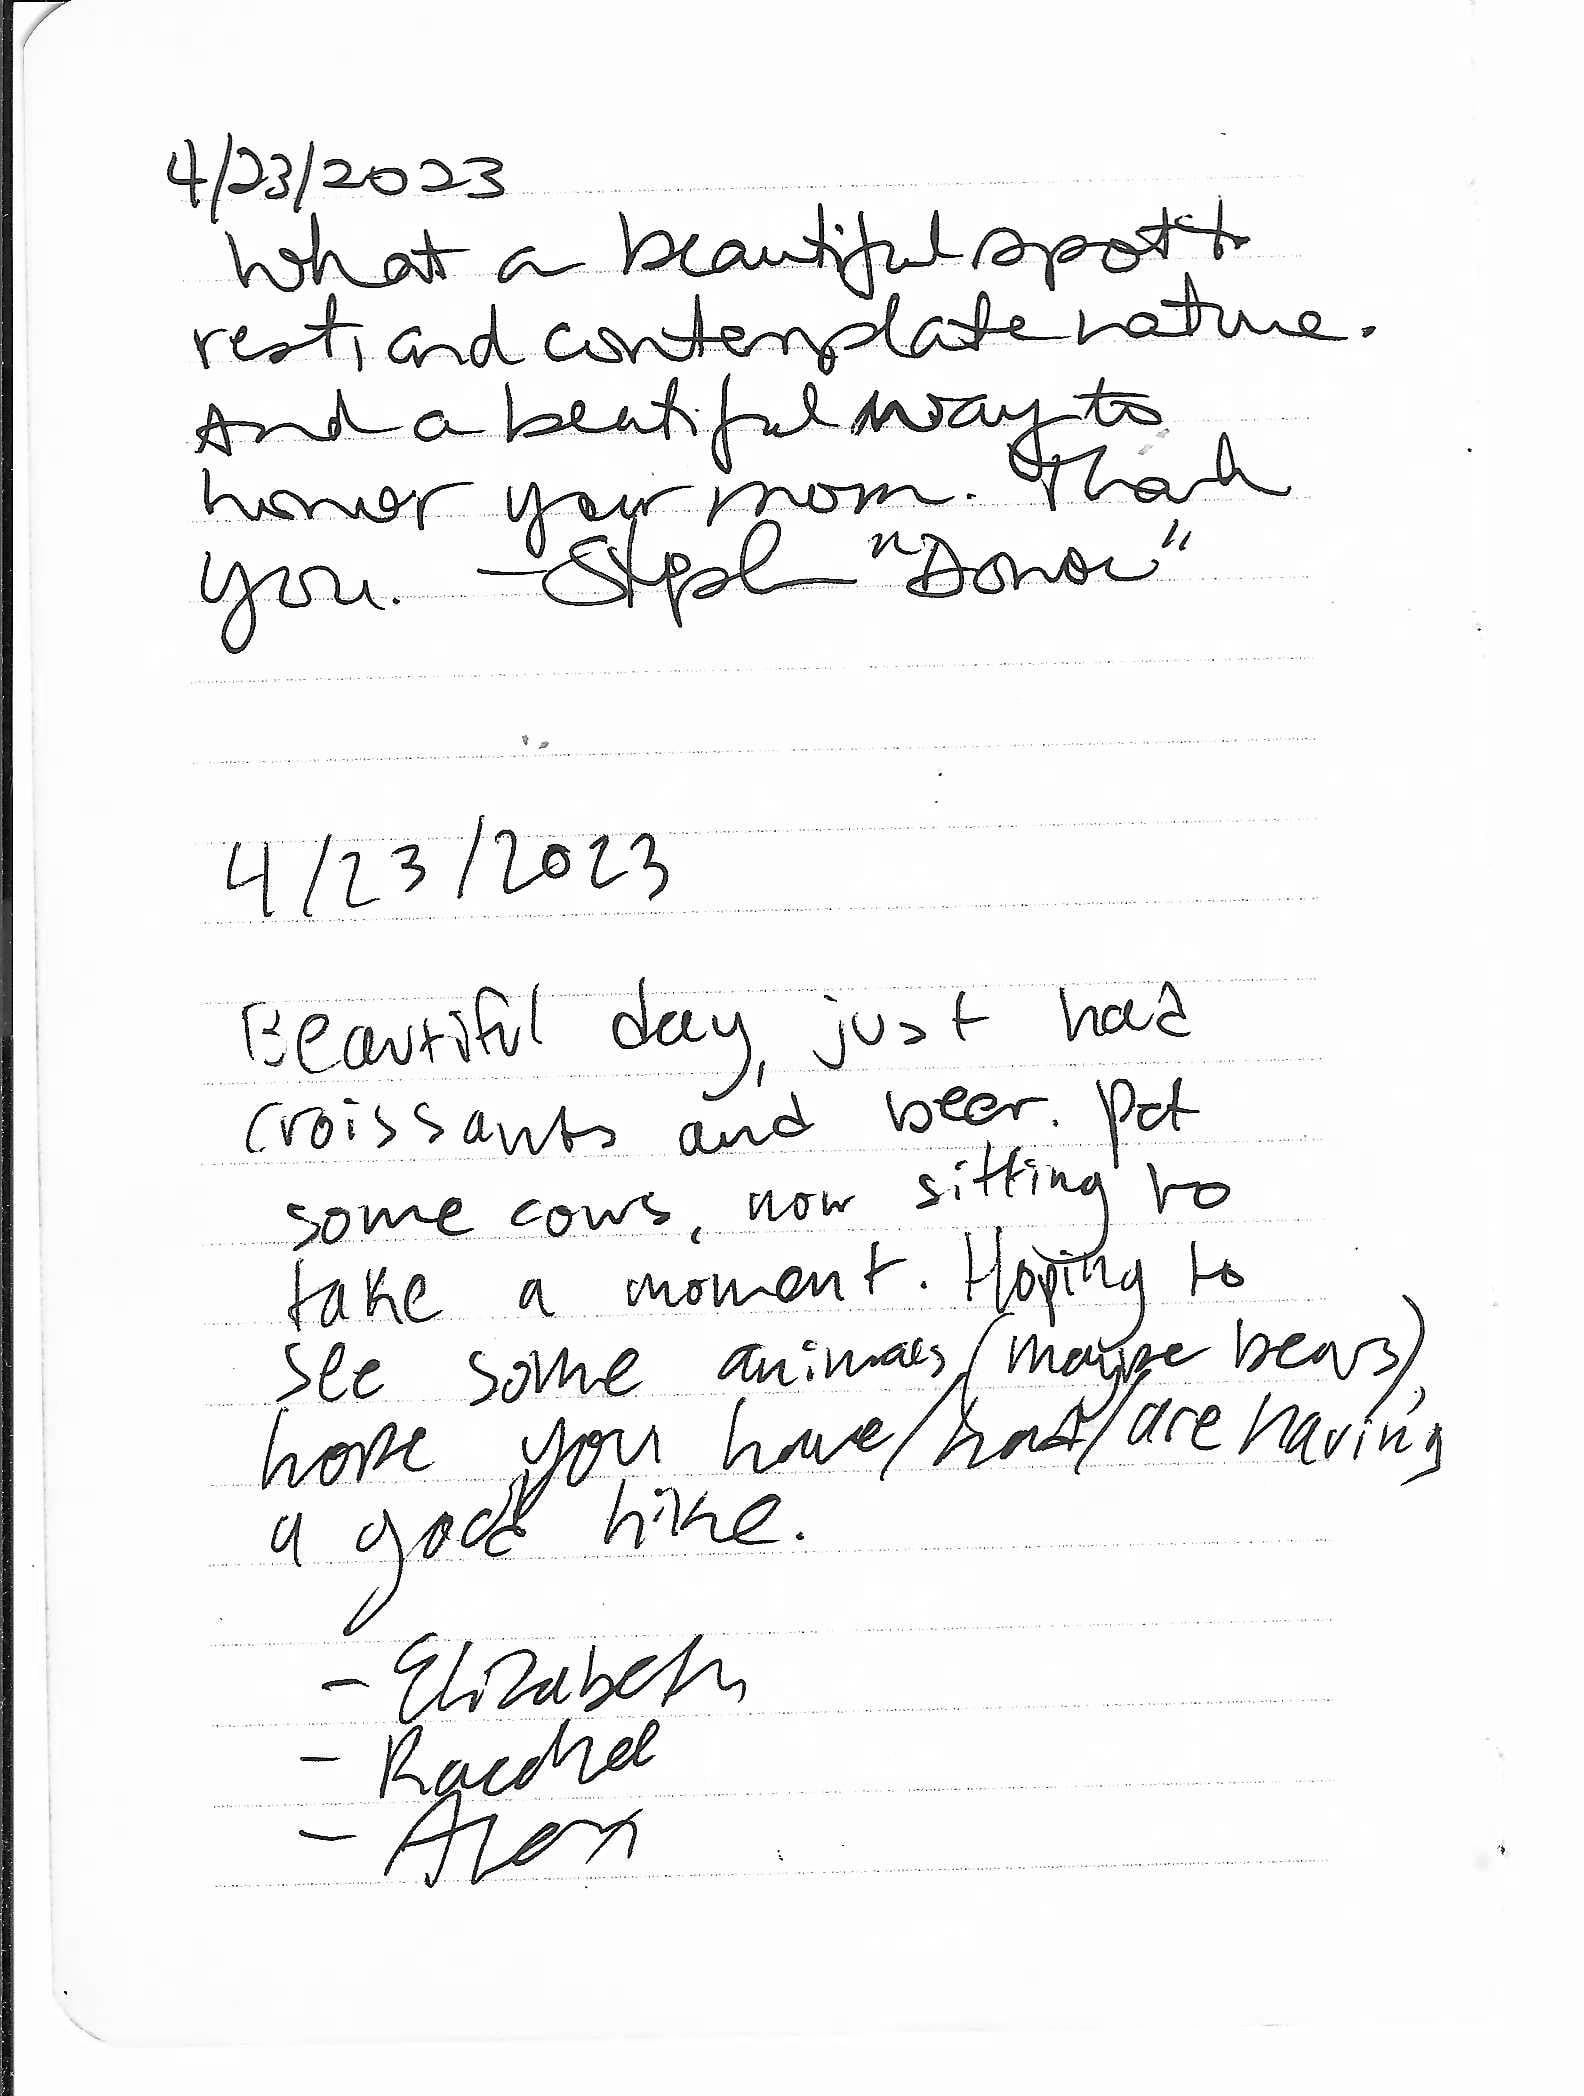 4/23/2023
What a beautiful spot to
rest, and contemplate nature.
And a beatiful way to
honor your mom. Thank
you. - Steph "Donor"
4/23/2023
Beautiful day, just had
croissants and beer. Pet
some cows, now sitting to
take a moment. Hoping to
see some animals (maybe bears),
hope you have/had/are having
a good hike.
- Elizabeth
- Rachel
- Alex